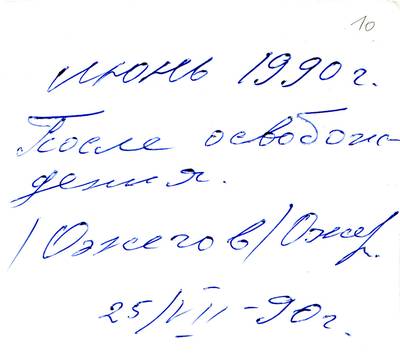 10
июнь 1990 г.
После освобож-
дения.
/Ожегов/ Ожег.
25/VII-90 г.